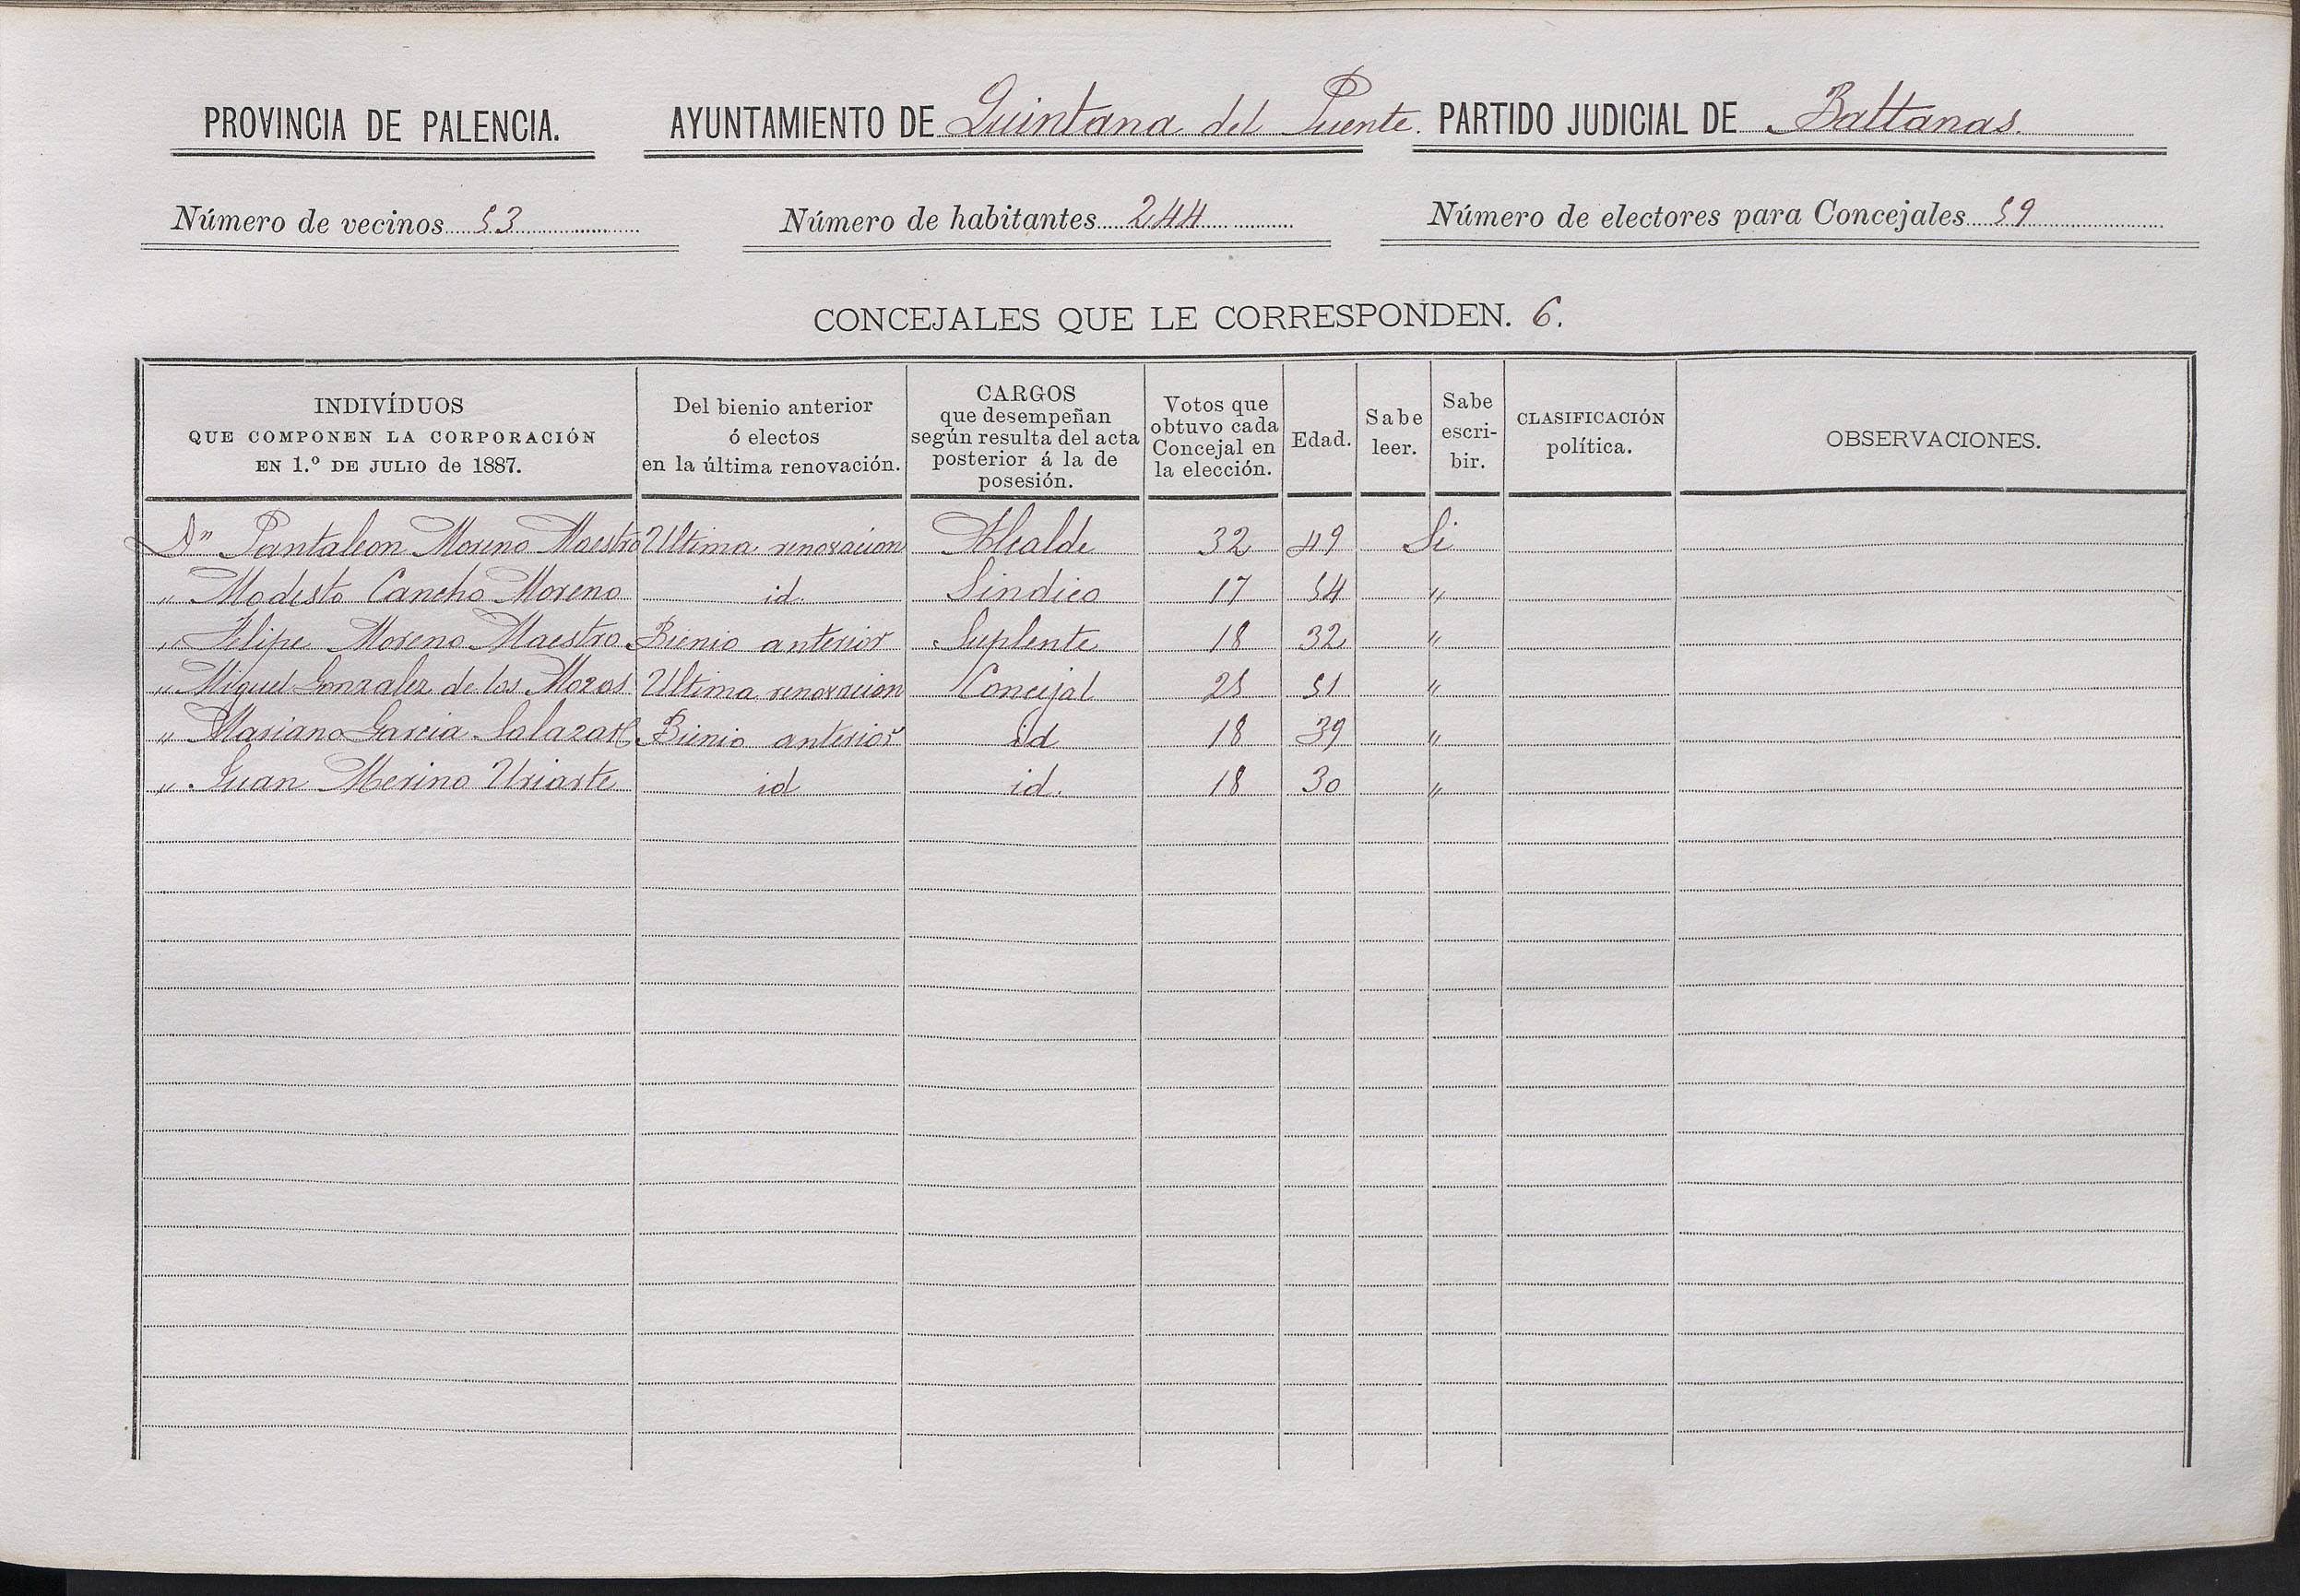 PROVINCIA DE PALENCIA. AYUNTAMIENTO DE Quintana del Puente. PARTIDO JUDICIAL DE Baltanas.
Número de vecinos 53 Número de habitantes 244 Número de electores para Concejales 59
CONCEJALES QUE LE CORRESPONDEN. 6.
INDIVÍDUOS
QUE COMPONEN LA CORPORACIÓN
EN 1.º DE JULIO de 1887.
Del bienio anterior
ó electos
en la última renovación.
CARGOS
que desempeñan
según resulta del acta
posterior á la de
posesión.
Votos que
obtuvo cada
Concejal en
la elección.
Edad.
Sabe
leer.
Sabe
escri-
bir.
CLASIFICACIÓN
política.
OBSERVACIONES.
Dn Pantaleon Moreno Maestro Ultima renovacion Alcalde 32 49 Si
" Modesto Cancho Moreno id. Sindico 17 54 "
" Felipe Moreno Maestro Bienio anterior Suplente 18 32 "
" Miguel Gonzalez de los Mozos Ultima renovacion Concejal 25 51 "
" Mariano Garcia Salazar Bienio anterior id 18 39 "
" Juan Merino Uriarte id id. 18 30 "